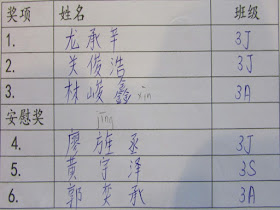 奖项 姓名 班级
1. 龙承芊 3J
2. 关俊浩 3J
3. 林峻鑫 xin 3A
安慰奖 jīng
4. 廖旌丞 3J
5. 黄宇泽 3S
6. 郭奕承 3A